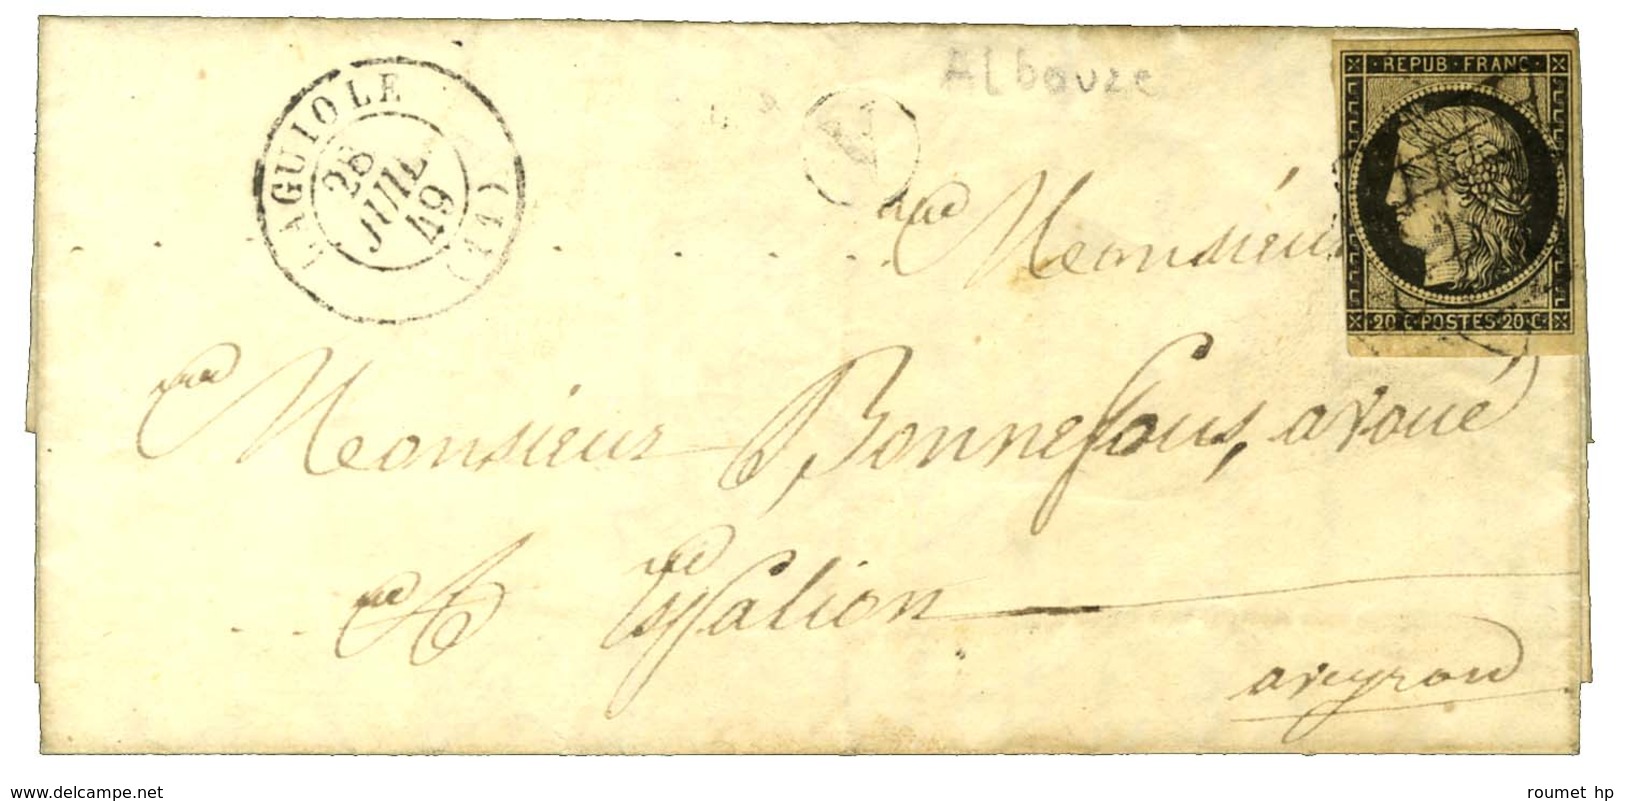 Albouze
REPUB · FRANC ·
LAGUIOLE
28
JUIL.
49
(11)
A
Monsieur
20 · C · POSTES · 20 · C ·
Monsieur Bonnefous, avoué
à Espalion
aveyron
www.delcampe.net
roumet hp